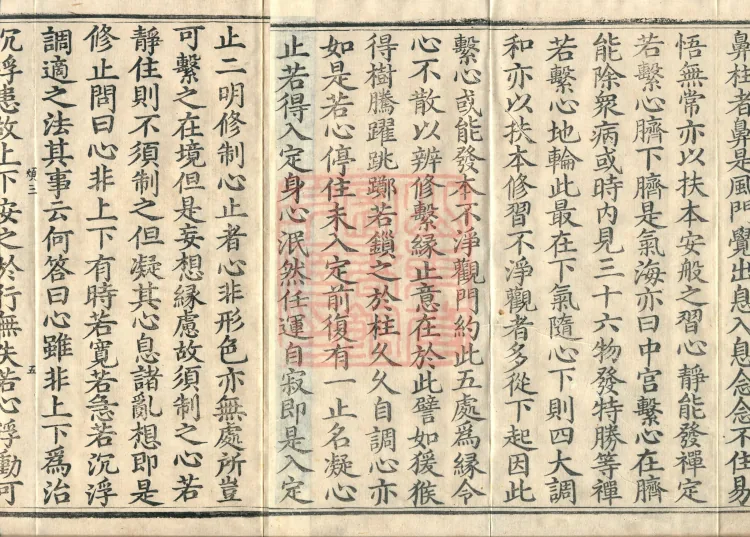 鼻柱者鼻是風門覺出息入息念念不住易
悟無常亦以扶本安般之習心靜能發禪定
若繫心臍下臍是氣海亦曰中宫繫心在臍
能除衆病或時内見三十六物發特勝等禪
若繫心地輪此最在下氣隨心下則四大調
和亦以扶本修習不淨觀者多從下起因此
繫心或能發本不淨觀門約此五處爲緣令
心不散以辨修繫緣止意在於此譬如猨猴
得樹騰躍跳躑若鎖之於柱久久自調心亦
如是若心停住未入定前復有一止名凝心
止若得入定身心泯然任運自寂即是入定
止二明修制心止者心非形色亦無處所豈
可繫之在境但是妄想緣慮故須制之心若
靜住則不須制之但凝其心息諸亂想即是
修止問曰心非上下有時若寬若急若沉浮
調適之法其事云何答曰心雖非上下爲治
五
沉浮患故上下安之於行無失若心浮動可